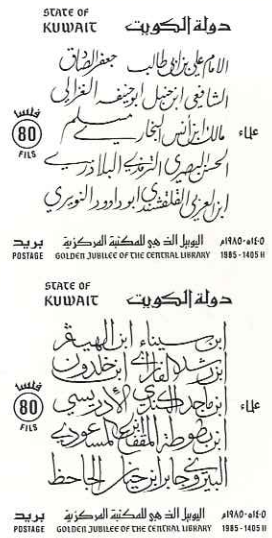 STATE OF
KUWAIT
دولة الكويت
الامام علي بن ابي طالب جعفر الصادق
الشافعي ابن حنبل ابو حنيفه الغزالي
مالك ابن انس البخاري مسلم
علماء
فلسا
80
FILS
الحسن البصري الترمذي البلاذري
ابن العربي القلقشندي ابو داوود النويري
بريد
POSTAGE
اليوبيل الذهبي للمكتبة المركزية
GOLDEN JUBILEE OF THE CENTRAL LIBRARY
١٤٠٥هـ-١٩٨٥م
1985-1405 H
STATE OF
KUWAIT
دولة الكويت
ابن سيناء ابن الهيثم
ابن رشد الفارابي ابن خلدون
ابن ماجد الكندي الادريسي
علماء
فلسا
80
FILS
ابن بطوطة ابن المقفع المسعودي
البيروني جابر ابن حيان الجاحظ
بريد
POSTAGE
اليوبيل الذهبي للمكتبة المركزية
GOLDEN JUBILEE OF THE CENTRAL LIBRARY
١٤٠٥هـ-١٩٨٥م
1985-1405 H